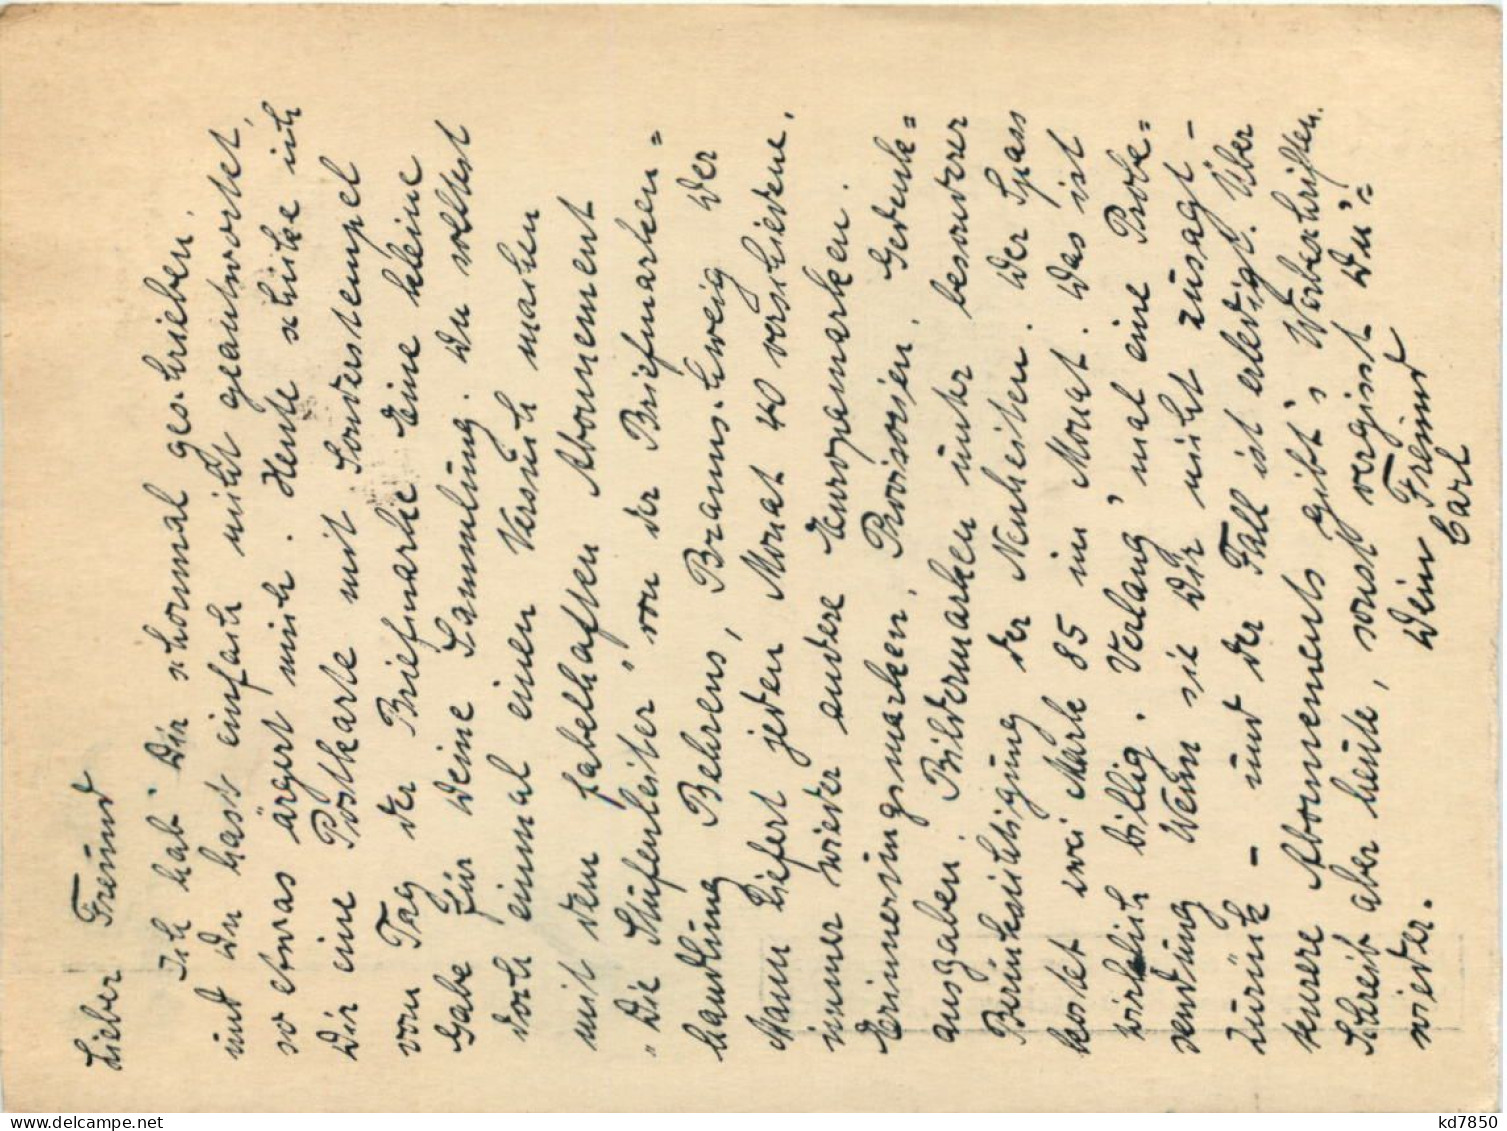 Lieber Freund
Ich hab' Dir schonmal geschrieben.
und Du hast einfach nicht geantwortet,
so etwas ärgert mich. Heute schicke ich
Dir eine Postkarte mit Sonderstempel
vom Tag der Briefmarke. Eine kleine
Gabe für Deine Sammlung. Du solltest
doch einmal einen Versuch machen
mit dem fabelhaften Abonnement
„Die Stufenleiter" von der Briefmarken=
handlung Behrens, Braunschweig. Der
Mann liefert jeden Monat 40 verschiedene,
immer wieder andere Europamarken.
Erinnerungsmarken, Provisorien, Gedenk=
ausgaben, Bildermarken unter besonderer
Berücksichtigung der Neuheiten. Der Spass
kostet zwei Mark 85 im Monat. Das ist
wirklich billig. Verlang' mal eine Probe=
sendung. Wenn sie Dir nicht zusagt –
zurück – und der Fall ist erledigt. Über
unsere Abonnements gibt's Werbeschriften.
Schreib aber heute, sonst vergisst Du's
wieder. Dein Freund
Carl
kd7850